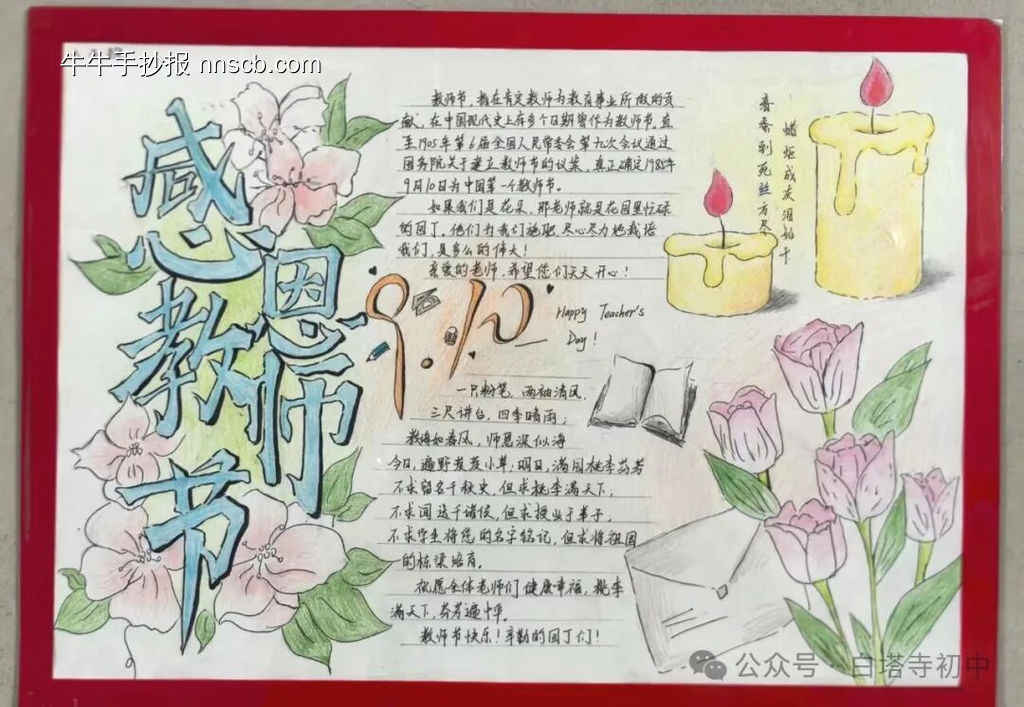 牛牛手抄报 nnscb.com
感恩教师节
教师节，旨在肯定教师为教育事业所做的贡
献。在中国现代史上有多个日期曾作为教师节，直
至1985年第6届全国人民常委会第九次会议通过
国务院关于建立教师节的议案，真正确定1985年
9月10日为中国第一个教师节。
如果我们是花朵，那老师就是花园里忙碌
的园丁。他们为我们施肥，尽心尽力地栽培
我们，是多么的伟大！
亲爱的老师，希望您们天天开心！
春蚕到死丝方尽
蜡炬成灰泪始干
9.10
Happy Teacher's
Day!
一只粉笔，两袖清风，
三尺讲台，四季晴雨；
教诲如春风，师恩深似海
今日，遍野茇茇小草；明日，满园桃李芬芳
不求留名千秋史，但求桃李满天下；
不求闻达于诸侯，但求授业于莘子，
不求学生将您的名字铭记，但求将祖国
的栋梁培育。
祝愿全体老师们健康幸福，桃李
满天下，芬芳遍中华。
教师节快乐！辛勤的园丁们！
公众号·白塔寺初中